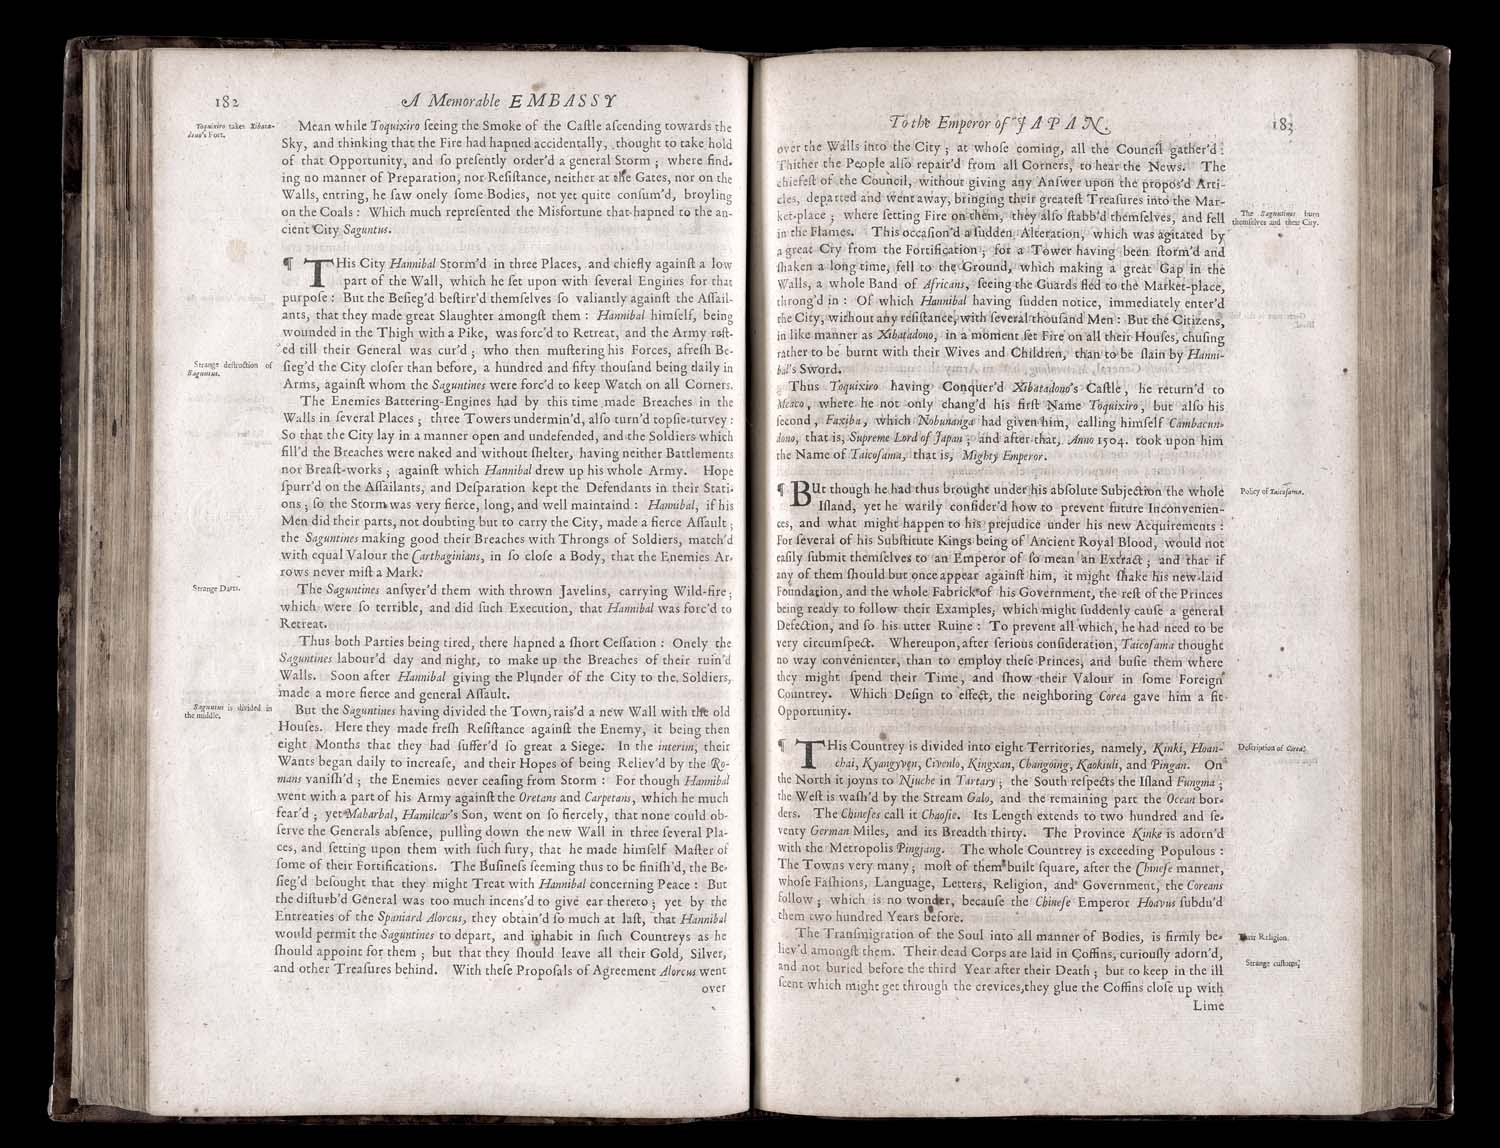 182
A Memorable EMBASSY
Toquixiro takes Xibata-
dono's Fort.
Mean while Toquixiro ſeeing the Smoke of the Caſtle aſcending towards the
Sky, and thinking that the Fire had hapned accidentally, thought to take hold
of that Opportunity, and ſo preſently order'd a general Storm ; where find-
ing no manner of Preparation, nor Reſiſtance, neither at the Gates, nor on the
Walls, entring, he ſaw onely ſome Bodies, not yet quite conſum'd, broyling
on the Coals : Which much repreſented the Misfortune that hapned to the an-
cient City Saguntus.
¶ THis City Hannibal Storm'd in three Places, and chiefly againſt a low
part of the Wall, which he ſet upon with ſeveral Engines for that
purpoſe : But the Beſieg'd beſtirr'd themſelves ſo valiantly againſt the Aſſail-
ants, that they made great Slaughter amongſt them : Hannibal himſelf, being
wounded in the Thigh with a Pike, was forc'd to Retreat, and the Army reſt-
ed till their General was cur'd ; who then muſtering his Forces, afreſh Be-
Strange deſtruction of
Saguntus.
ſieg'd the City cloſer than before, a hundred and fifty thouſand being daily in
Arms, againſt whom the Saguntines were forc'd to keep Watch on all Corners.
The Enemies Battering-Engines had by this time made Breaches in the
Walls in ſeveral Places ; three Towers undermin'd, alſo turn'd topſie-turvey :
So that the City lay in a manner open and undefended, and the Soldiers which
fill'd the Breaches were naked and without ſhelter, having neither Battlements
nor Breaſt-works ; againſt which Hannibal drew up his whole Army. Hope
ſpurr'd on the Aſſailants, and Deſparation kept the Defendants in their Stati-
ons ; ſo the Storm was very fierce, long, and well maintaind : Hannibal, if his
Men did their parts, not doubting but to carry the City, made a fierce Aſſault ;
the Saguntines making good their Breaches with Throngs of Soldiers, match'd
with equal Valour the Carthaginians, in ſo cloſe a Body, that the Enemies Ar-
rows never miſt a Mark.
Strange Darts.
The Saguntines anſwer'd them with thrown Javelins, carrying Wild-fire ;
which were ſo terrible, and did ſuch Execution, that Hannibal was forc'd to
Retreat.
Thus both Parties being tired, there hapned a ſhort Ceſſation : Onely the
Saguntines labour'd day and night, to make up the Breaches of their ruin'd
Walls. Soon after Hannibal giving the Plunder of the City to the Soldiers,
made a more fierce and general Aſſault.
Saguntus is divided in
the middle.
But the Saguntines having divided the Town, rais'd a new Wall with the old
Houſes. Here they made freſh Reſiſtance againſt the Enemy, it being then
eight Months that they had ſuffer'd ſo great a Siege. In the interim, their
Wants began daily to increaſe, and their Hopes of being Reliev'd by the Ro-
mans vaniſh'd ; the Enemies never ceaſing from Storm : For though Hannibal
went with a part of his Army againſt the Oretans and Carpetans, which he much
fear'd ; yet Maharbal, Hamilcar's Son, went on ſo fiercely, that none could ob-
ſerve the Generals abſence, pulling down the new Wall in three ſeveral Pla-
ces, and ſetting upon them with ſuch fury, that he made himſelf Maſter of
ſome of their Fortifications. The Buſineſs ſeeming thus to be finiſh'd, the Be-
ſieg'd beſought that they might Treat with Hannibal concerning Peace : But
the diſturb'd General was too much incens'd to give ear thereto ; yet by the
Entreaties of the Spaniard Alorcus, they obtain'd ſo much at laſt, that Hannibal
would permit the Saguntines to depart, and inhabit in ſuch Countreys as he
ſhould appoint for them ; but that they ſhould leave all their Gold, Silver,
and other Treaſures behind. With theſe Propoſals of Agreement Alorcus went
over
To the Emperor of JAPAN.
183
over the Walls into the City ; at whoſe coming, all the Council gather'd :
Thither the People alſo repair'd from all Corners, to hear the News. The
chiefeſt of the Council, without giving any Anſwer upon the propos'd Arti-
cles, departed and went away, bringing their greateſt Treaſures into the Mar-
ket-place ; where ſetting Fire on them, they alſo ſtabb'd themſelves, and fell
The Saguntines burn
themſelves and their City.
in the Flames. This occaſion'd a ſudden Alteration, which was agitated by
a great Cry from the Fortification ; for a Tower having been ſtorm'd and
ſhaken a long time, fell to the Ground, which making a great Gap in the
Walls, a whole Band of Africans, ſeeing the Guards fled to the Market-place,
throng'd in : Of which Hannibal having ſudden notice, immediately enter'd
the City, without any reſiſtance, with ſeveral thouſand Men : But the Citizens,
in like manner as Xibatadono, in a moment ſet Fire on all their Houſes, chuſing
rather to be burnt with their Wives and Children, than to be ſlain by Hanni-
bal's Sword.
Thus Toquixiro having Conquer'd Xibatadono's Caſtle, he return'd to
Meaco, where he not only chang'd his firſt Name Toquixiro, but alſo his
ſecond, Faxiba, which Nobunanga had given him, calling himſelf Cambacun-
dono, that is, Supreme Lord of Japan ; and after that, Anno 1504. took upon him
the Name of Taicoſama, that is, Mighty Emperor.
¶ BUt though he had thus brought under his abſolute Subjection the whole
Policy of Taicoſama.
Iſland, yet he warily conſider'd how to prevent future Inconvenien-
ces, and what might happen to his prejudice under his new Acquirements :
For ſeveral of his Subſtitute Kings being of Ancient Royal Blood, would not
eaſily ſubmit themſelves to an Emperor of ſo mean an Extract ; and that if
any of them ſhould but once appear againſt him, it might ſhake his new-laid
Foundation, and the whole Fabrick of his Government, the reſt of the Princes
being ready to follow their Examples, which might ſuddenly cauſe a general
Defection, and ſo his utter Ruine : To prevent all which, he had need to be
very circumſpect. Whereupon, after ſerious conſideration, Taicoſama thought
no way convenienter, than to employ theſe Princes, and buſie them where
they might ſpend their Time, and ſhow their Valour in ſome Foreign
Countrey. Which Deſign to effect, the neighboring Corea gave him a fit
Opportunity.
¶ THis Countrey is divided into eight Territories, namely, Kinki, Hoan-
Deſcription of Corea.
chai, Kyangyven, Civenlo, Kingxan, Changoing, Kaokiuli, and Pingan. On
the North it joyns to Njuche in Tartary ; the South reſpects the Iſland Fungma ;
the Weſt is waſh'd by the Stream Galo, and the remaining part the Ocean bor-
ders. The Chineſes call it Chaoſie. Its Length extends to two hundred and ſe-
venty German Miles, and its Breadth thirty. The Province Kinke is adorn'd
with the Metropolis Pingjang. The whole Countrey is exceeding Populous :
The Towns very many ; moſt of them built ſquare, after the Chineſe manner,
whoſe Faſhions, Language, Letters, Religion, and Government, the Coreans
follow ; which is no wonder, becauſe the Chineſe Emperor Hoavus ſubdu'd
them two hundred Years before.
The Tranſmigration of the Soul into all manner of Bodies, is firmly be-
Their Religion.
liev'd amongſt them. Their dead Corps are laid in Coffins, curiouſly adorn'd,
and not buried before the third Year after their Death ; but to keep in the ill
Strange cuſtoms.
ſcent which might get through the crevices, they glue the Coffins cloſe up with
Lime